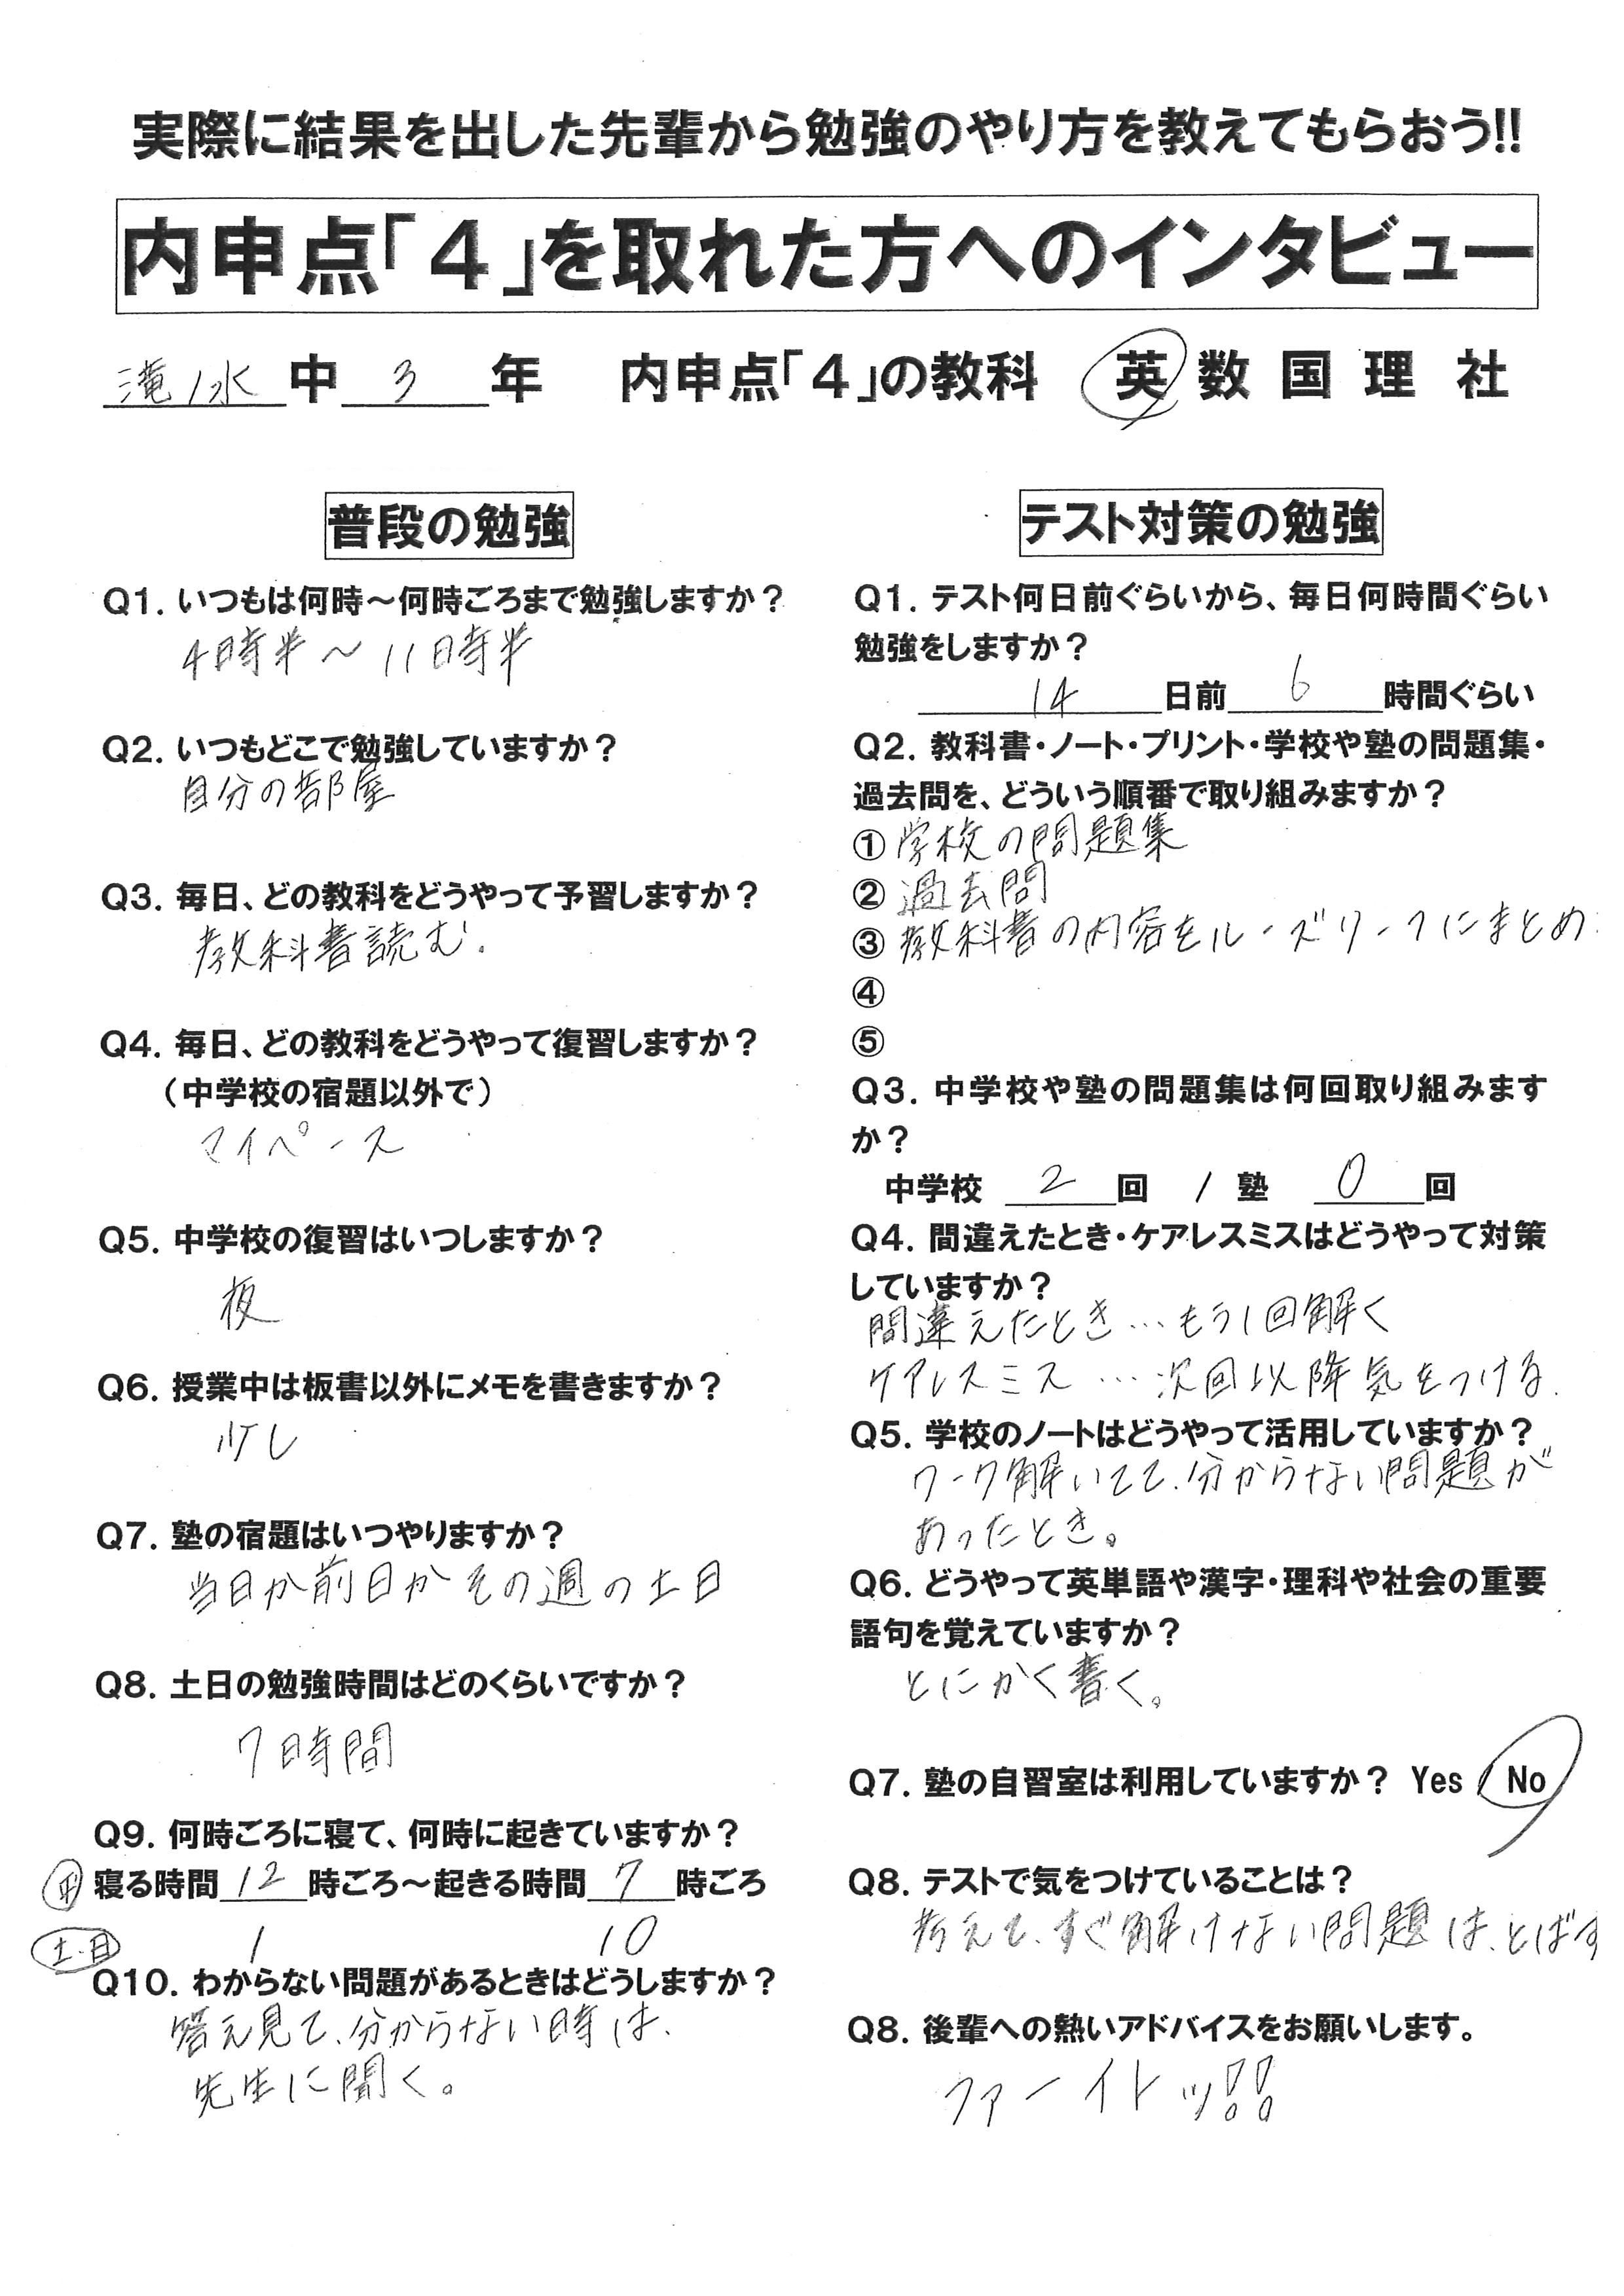 実際に結果を出した先輩から勉強のやり方を教えてもらおう!!
内申点「4」を取れた方へのインタビュー
滝ノ水中3年 内申点「4」の教科 英 数 国 理 社
普段の勉強
Q1. いつもは何時～何時ごろまで勉強しますか？
4時半～11時半
Q2. いつもどこで勉強していますか？
自分の部屋
Q3. 毎日、どの教科をどうやって予習しますか？
教科書読む.
Q4. 毎日、どの教科をどうやって復習しますか？
（中学校の宿題以外で）
マイペース
Q5. 中学校の復習はいつしますか？
夜
Q6. 授業中は板書以外にメモを書きますか？
少し
Q7. 塾の宿題はいつやりますか？
当日か前日かその週の土日
Q8. 土日の勉強時間はどのくらいですか？
7時間
Q9. 何時ごろに寝て、何時に起きていますか？
平 寝る時間12時ごろ～起きる時間7時ごろ
土・日 1 10
Q10. わからない問題があるときはどうしますか？
答え見て、分からない時は、
先生に聞く。
テスト対策の勉強
Q1. テスト何日前ぐらいから、毎日何時間ぐらい
勉強をしますか？
14日前6時間ぐらい
Q2. 教科書・ノート・プリント・学校や塾の問題集・
過去問を、どういう順番で取り組みますか？
①学校の問題集
②過去問
③教科書の内容をルーズリーフにまとめ
④
⑤
Q3. 中学校や塾の問題集は何回取り組みます
か？
中学校 2回 / 塾 0回
Q4. 間違えたとき・ケアレスミスはどうやって対策
していますか？
間違えたとき…もう1回解く
ケアレスミス…次回以降気をつける.
Q5. 学校のノートはどうやって活用していますか？
ワーク解いてて、分からない問題が
あったとき。
Q6. どうやって英単語や漢字・理科や社会の重要
語句を覚えていますか？
とにかく書く。
Q7. 塾の自習室は利用していますか？ Yes / No
Q8. テストで気をつけていることは？
考えて、すぐ解けない問題は、とばす
Q8. 後輩への熱いアドバイスをお願いします。
ファーイトッ!!